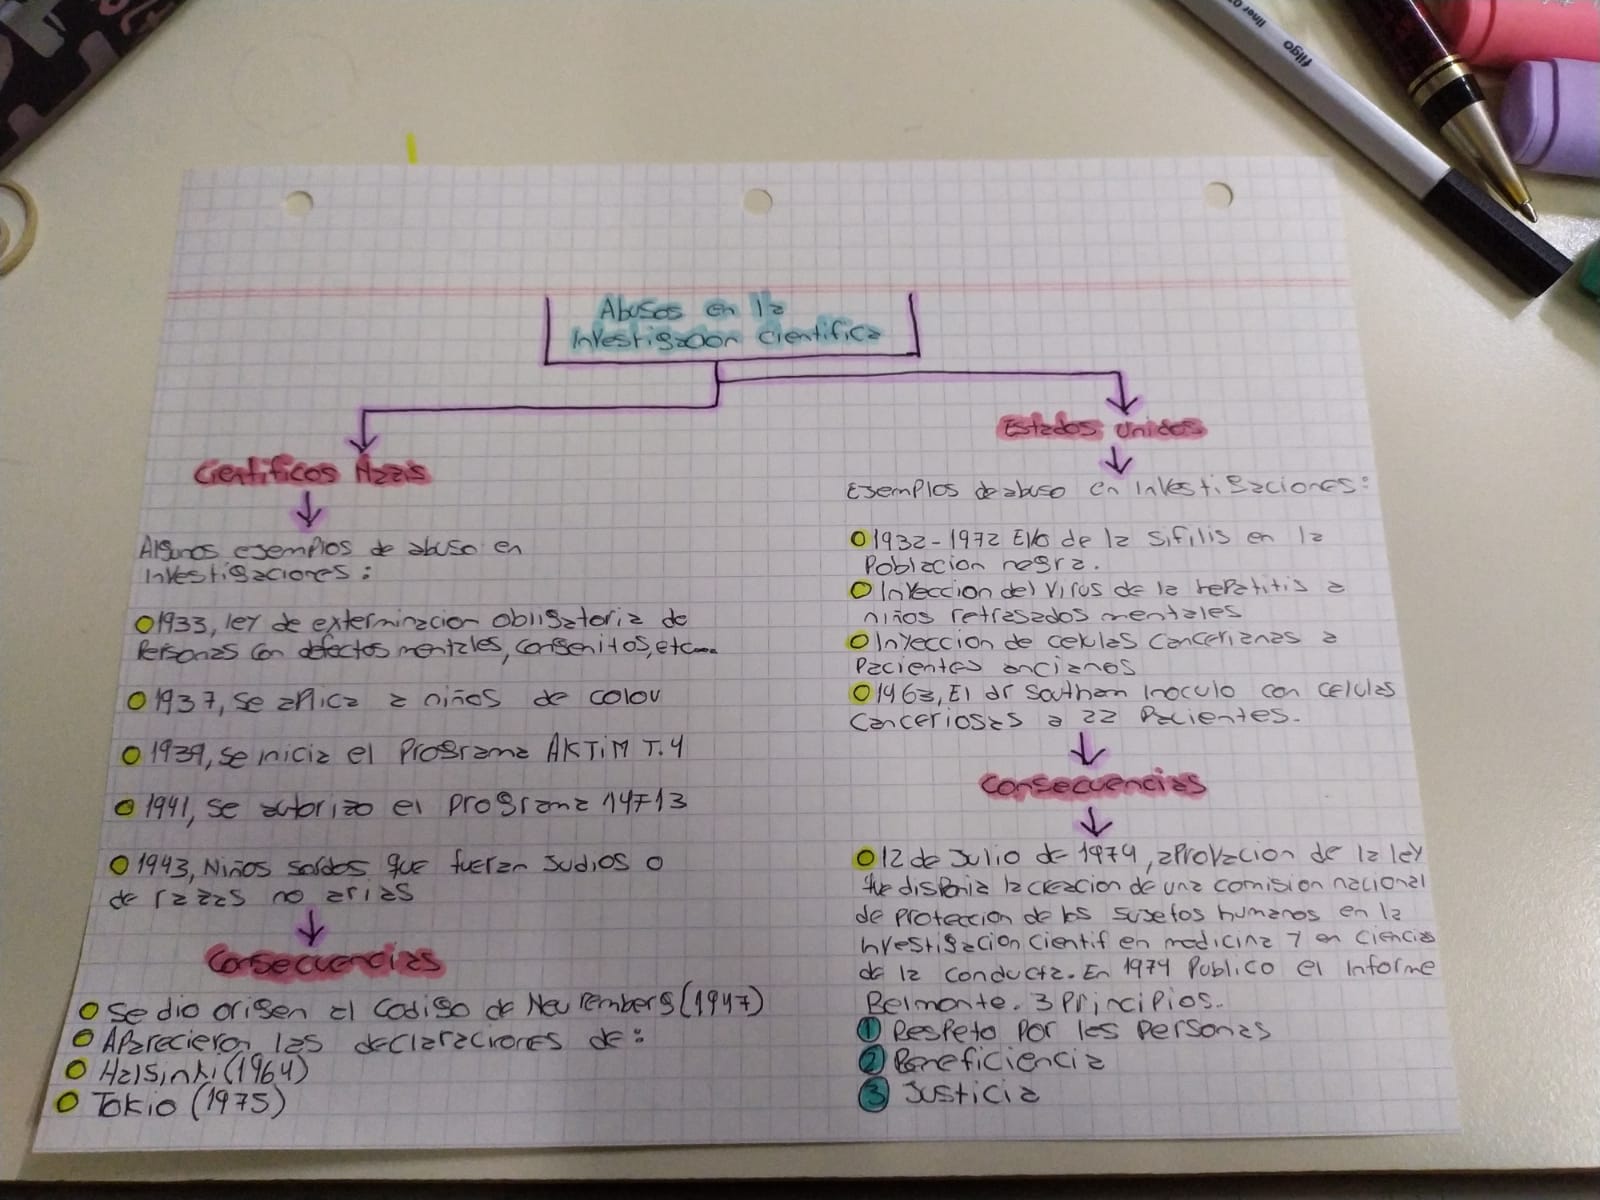 filgo liner 0
Abusos en la
Investigacion cientifica
Cientificos Nazis
Algunos ejemplos de abuso en
investigaciones:
1933, ley de exterminacion obligatoria de
Personas con defectos mentales, congenitos, etc...
1937, se aplica a niños de color
1939, se inicia el Programa AKTIM T.4
1941, se autorizo el programa 14F13
1943, Niños sordos que fueran judios o
de razas no arias
Consecuencias
Se dio origen al Codigo de Neuremberg (1947)
Aparecieron las declaraciones de:
Halsinki (1964)
Tokio (1975)
Estados Unidos
Ejemplos de abuso en investigaciones:
1932-1972 EVO de la sifilis en la
Poblacion negra.
Inyeccion del virus de la hepatitis a
niños retrasados mentales
Inyeccion de celulas cancerianas a
Pacientes ancianos
1963, El dr Southan inoculo con celulas
canceriosas a 22 Pacientes.
Consecuencias
12 de Julio de 1974, aprovacion de la ley
que disponia la creacion de una comision nacional
de proteccion de los sujetos humanos en la
investigacion cientif en medicina y en ciencias
de la conducta. En 1974 Publico el informe
Belmonte. 3 Principios.
1 Respeto por les personas
2 Beneficiencia
3 Justicia